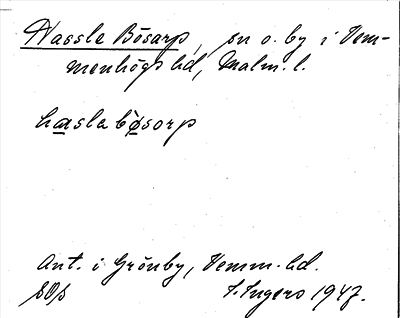 Hassle Bösarp, sn o. by i Vem-
menhögs hd, Malm. l.
hasla bösorp
Ant. i Grönby, Vemm. hd.
I. Ingers 1947.